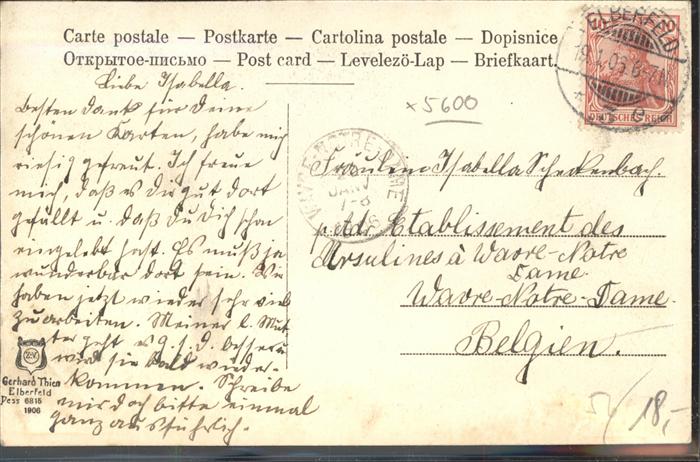 Carte postale — Postkarte — Cartolina postale — Dopisnice
Открытое-письмо — Post card — Levelező-Lap — Briefkaart.
ELBERFELD
DEUTSCHES REICH
×5600
Liebe Isabella.
Besten Dank für Deine
schönen Karten, habe mich
riesig gefreut. Ich freue
mich, daß es Dir gut dort
gefällt u. daß Du Dich schon
eingelebt hast. Es muß ja
wunderbar dort sein. Wir
haben jetzt wieder sehr viel
zu arbeiten. Meiner l. Mut-
ter geht es G. s. D. besser u.
wird sie bald wieder-
kommen. Schreibe
mir doch bitte einmal
ganz ausführlich.
WAVRE-NOTRE-DAME
JANV
7-8
Fräulein Isabella Scheckenbach.
p. Adr. Etablissement des
Ursulines à Wavre-Notre
Dame.
Wavre-Notre-Dame.
Belgien.
Gerhard Thien
Elberfeld
Dess 6815
1906
18,-